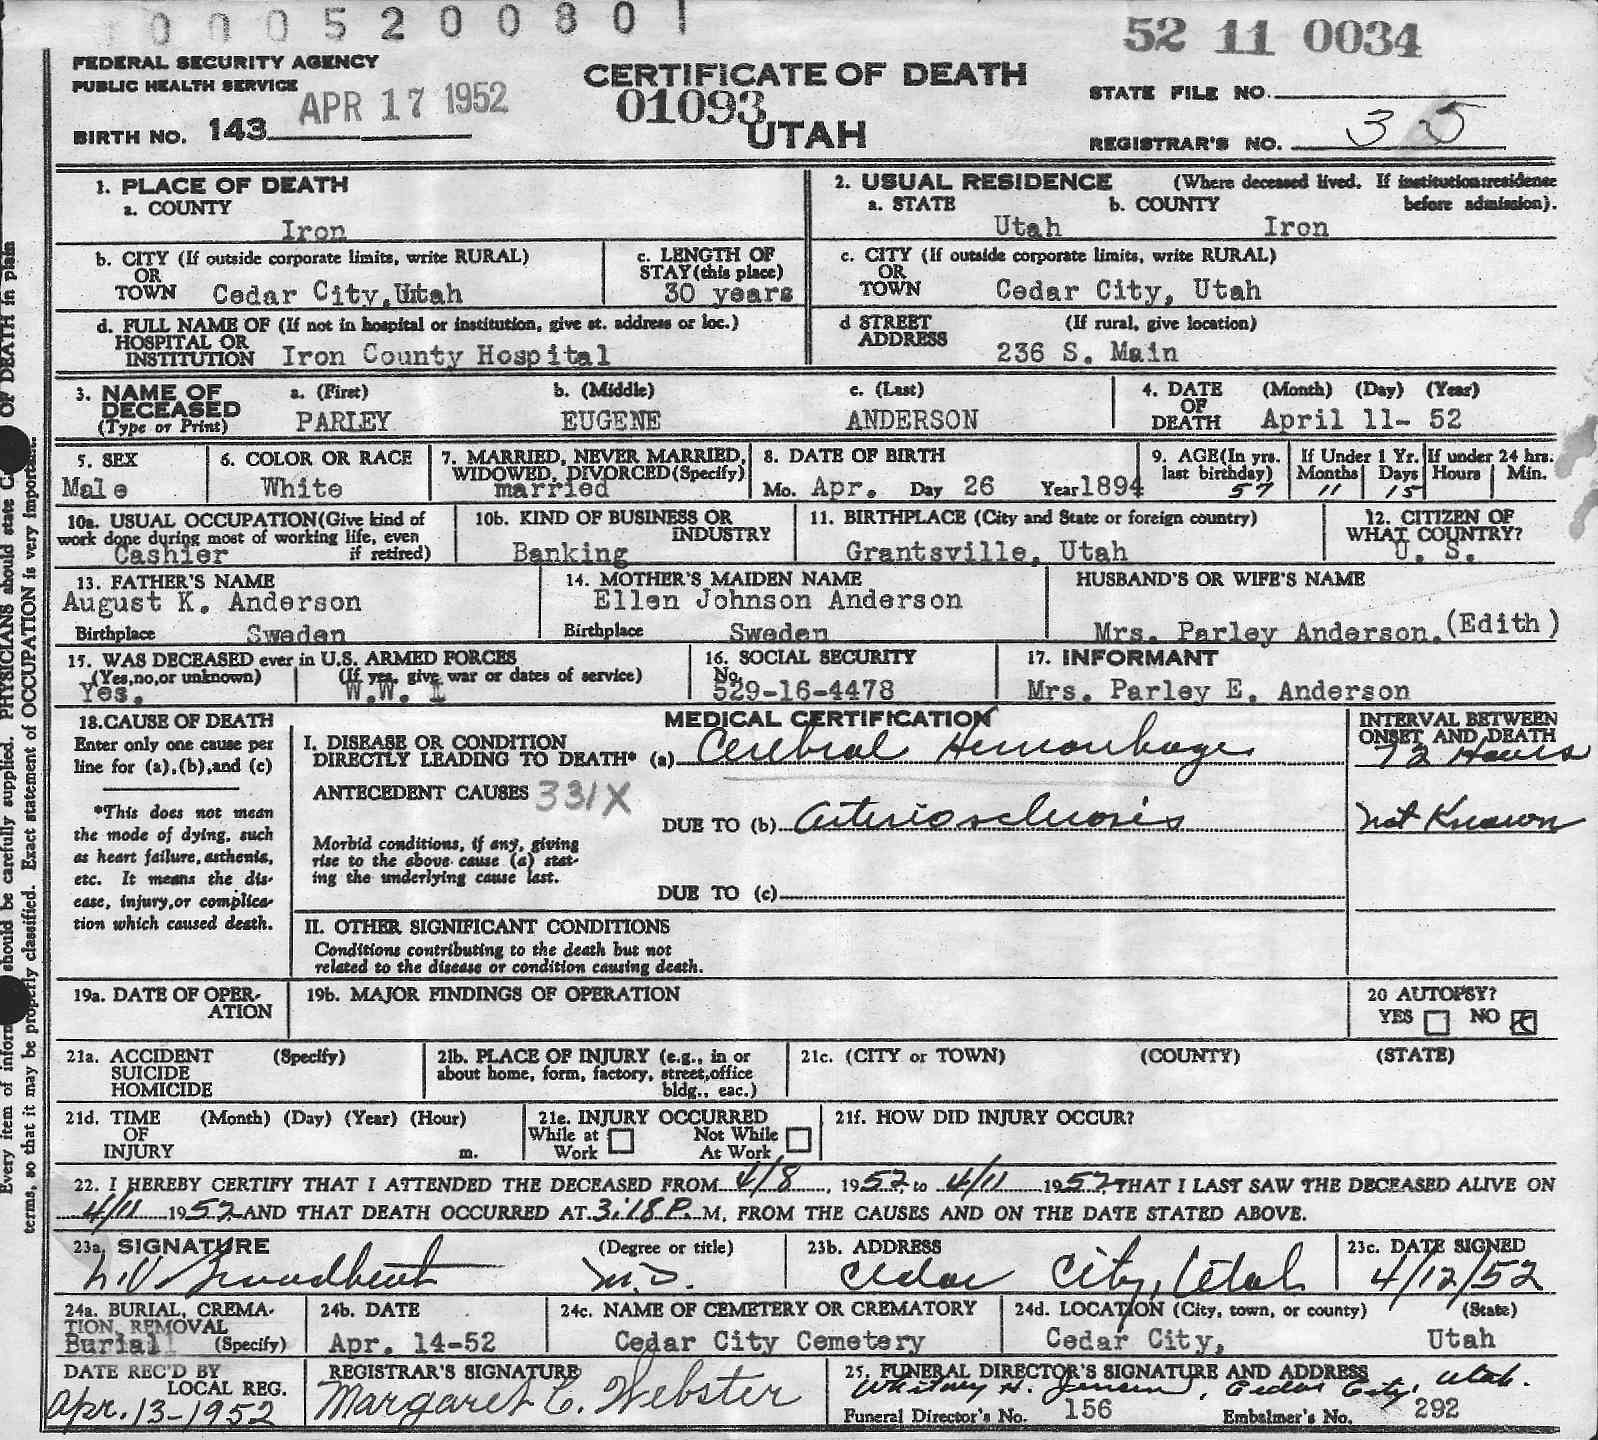 0 0 0 5 2 0 0 8 0 1
52 11 0034
FEDERAL SECURITY AGENCY
PUBLIC HEALTH SERVICE
APR 17 1952
BIRTH NO. 143
CERTIFICATE OF DEATH
01093
UTAH
STATE FILE NO.
REGISTRAR'S NO. 35
1. PLACE OF DEATH
a. COUNTY
Iron
2. USUAL RESIDENCE (Where deceased lived. If institution:residence before admission).
a. STATE b. COUNTY
Utah Iron
b. CITY (If outside corporate limits, write RURAL)
OR
TOWN Cedar City, Utah
c. LENGTH OF
STAY (this place)
30 years
c. CITY (If outside corporate limits, write RURAL)
OR
TOWN Cedar City, Utah
d. FULL NAME OF (If not in hospital or institution, give st. address or loc.)
HOSPITAL OR
INSTITUTION Iron County Hospital
d STREET (If rural, give location)
ADDRESS
236 S. Main
3. NAME OF DECEASED
(Type or Print)
a. (First) b. (Middle) c. (Last)
PARLEY EUGENE ANDERSON
4. DATE (Month) (Day) (Year)
OF
DEATH April 11- 52
5. SEX
Male
6. COLOR OR RACE
White
7. MARRIED, NEVER MARRIED,
WIDOWED, DIVORCED (Specify)
married
8. DATE OF BIRTH
Mo. Apr. Day 26 Year 1894
9. AGE (In yrs. last birthday)
57
If Under 1 Yr.
Months Days
11 15
If under 24 hrs.
Hours Min.
10a. USUAL OCCUPATION (Give kind of
work done during most of working life, even
if retired)
Cashier
10b. KIND OF BUSINESS OR
INDUSTRY
Banking
11. BIRTHPLACE (City and State or foreign country)
Grantsville, Utah
12. CITIZEN OF
WHAT COUNTRY?
U. S.
13. FATHER'S NAME
August K. Anderson
Birthplace Sweden
14. MOTHER'S MAIDEN NAME
Ellen Johnson Anderson
Birthplace Sweden
HUSBAND'S OR WIFE'S NAME
Mrs. Parley Anderson. (Edith)
15. WAS DECEASED ever in U.S. ARMED FORCES
(Yes, no, or unknown) (If yes, give war or dates of service)
Yes. W.W. I
16. SOCIAL SECURITY
No.
529-16-4478
17. INFORMANT
Mrs. Parley E. Anderson
18. CAUSE OF DEATH
Enter only one cause per
line for (a), (b), and (c)
*This does not mean
the mode of dying, such
as heart failure, asthenia,
etc. It means the dis-
ease, injury, or complica-
tion which caused death.
MEDICAL CERTIFICATION
I. DISEASE OR CONDITION
DIRECTLY LEADING TO DEATH* (a) Cerebral Hemorrhage
ANTECEDENT CAUSES 331X
DUE TO (b) arteriosclerosis
Morbid conditions, if any, giving
rise to the above cause (a) stat-
ing the underlying cause last.
DUE TO (c)
INTERVAL BETWEEN
ONSET AND DEATH
72 Hours
not Known
II. OTHER SIGNIFICANT CONDITIONS
Conditions contributing to the death but not
related to the disease or condition causing death.
19a. DATE OF OPER-
ATION
19b. MAJOR FINDINGS OF OPERATION
20 AUTOPSY?
YES NO
21a. ACCIDENT (Specify)
SUICIDE
HOMICIDE
21b. PLACE OF INJURY (e.g., in or
about home, form, factory, street, office
bldg., eac.)
21c. (CITY or TOWN) (COUNTY) (STATE)
21d. TIME (Month) (Day) (Year) (Hour)
OF
INJURY m.
21e. INJURY OCCURRED
While at Work Not While At Work
21f. HOW DID INJURY OCCUR?
22. I HEREBY CERTIFY THAT I ATTENDED THE DECEASED FROM 4/8, 1952, to 4/11 1952, THAT I LAST SAW THE DECEASED ALIVE ON
4/11 1952 AND THAT DEATH OCCURRED AT 3:18 P. M, FROM THE CAUSES AND ON THE DATE STATED ABOVE.
23a. SIGNATURE (Degree or title)
Broadbent M.D.
23b. ADDRESS
Cedar City, Utah
23c. DATE SIGNED
4/12/52
24a. BURIAL, CREMA-
TION, REMOVAL
(Specify)
Burial
24b. DATE
Apr. 14-52
24c. NAME OF CEMETERY OR CREMATORY
Cedar City Cemetery
24d. LOCATION (City, town, or county) (State)
Cedar City, Utah
DATE REC'D BY
LOCAL REG.
Apr. 13-1952
REGISTRAR'S SIGNATURE
Margaret C. Webster
25. FUNERAL DIRECTOR'S SIGNATURE AND ADDRESS
Whitney H. Jensen, Cedar City, Utah.
Funeral Director's No. 156 Embalmer's No. 292
should be carefully supplied. PHYSICIANS should state OF DEATH in plain
terms, so that it may be properly classified. Exact statement of OCCUPATION is very important.